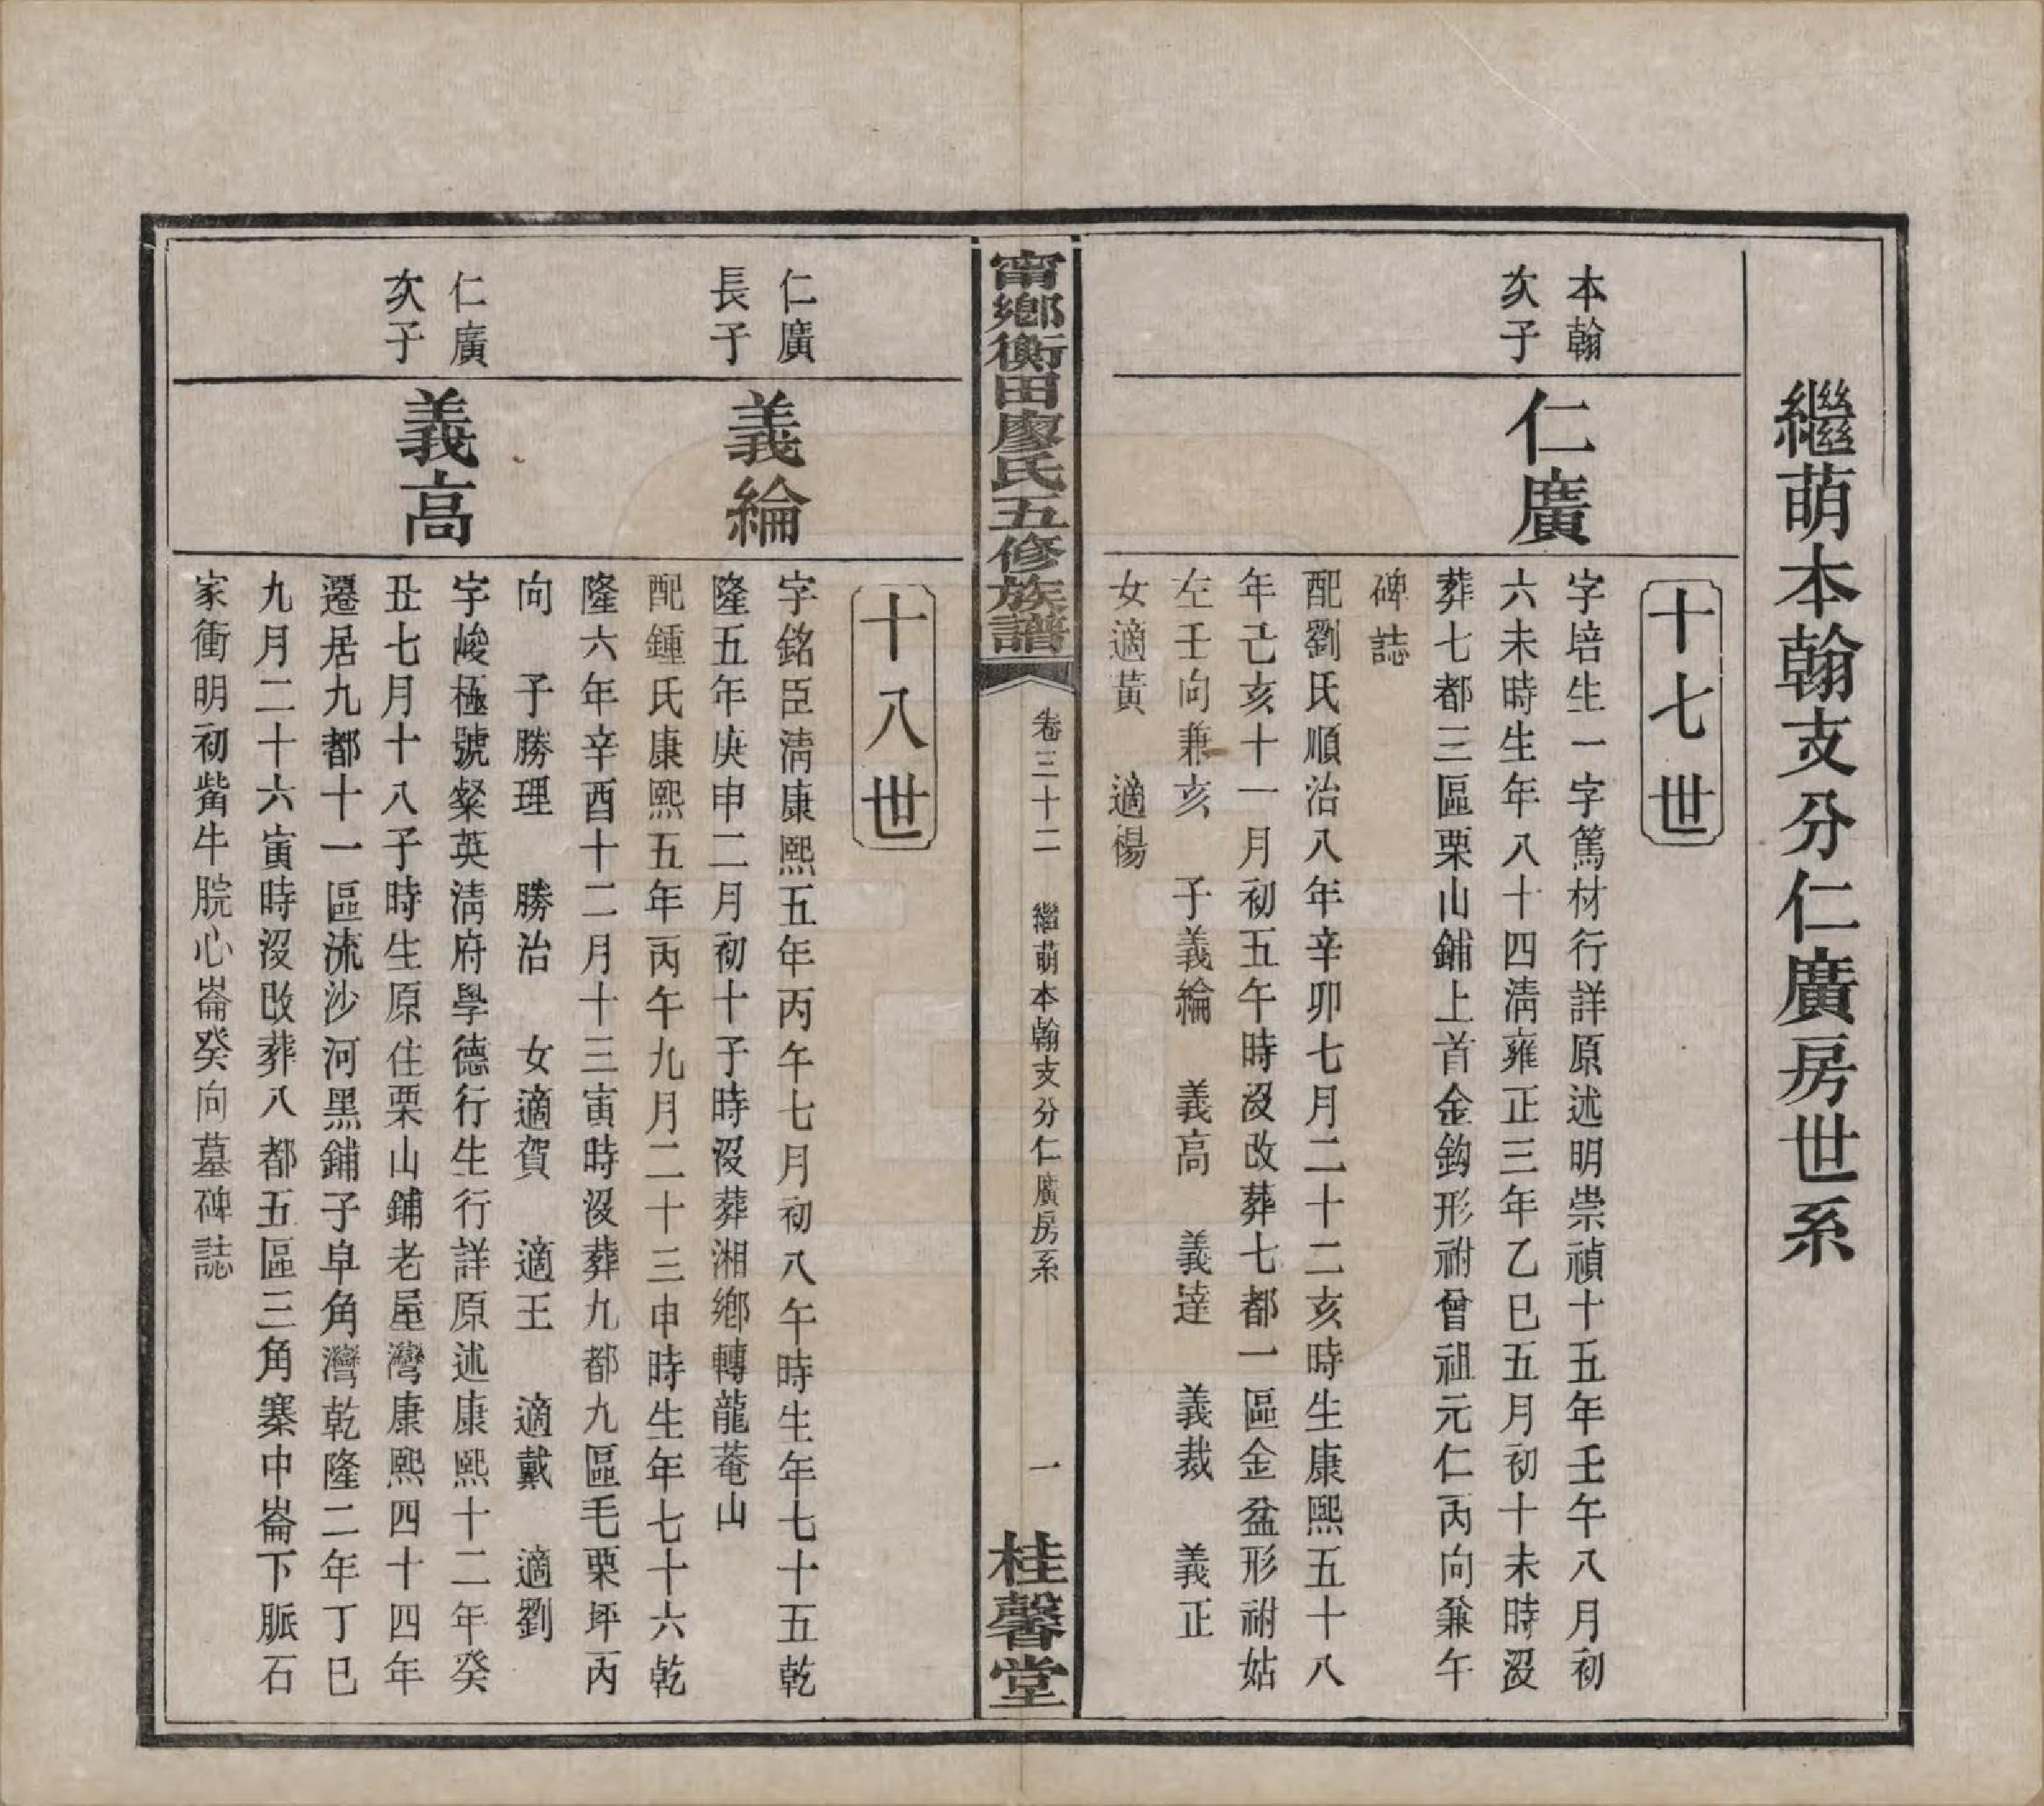 繼萌本翰支分仁廣房世系
十七世
本翰
次子
仁廣
字培生一字篤材行詳原述明崇禎十五年壬午八月初
六未時生年八十四淸雍正三年乙巳五月初十未時沒
葬七都三區栗山鋪上首金鈎形祔曾祖元仁丙向兼午
碑誌
配劉氏順治八年辛卯七月二十二亥時生康熙五十八
年己亥十一月初五午時沒改葬七都一區金盆形祔姑
左壬向兼亥 子義綸 義高 義達 義裁 義正
女適黃 適楊
甯鄉衡田廖氏五修族譜
卷三十二 繼萌本翰支分仁廣房系
一
桂馨堂
十八世
仁廣
長子
義綸
字銘臣淸康熙五年丙午七月初八午時生年七十五乾
隆五年庚申二月初十子時沒葬湘鄉轉龍菴山
配鍾氏康熙五年丙午九月二十三申時生年七十六乾
隆六年辛酉十二月十三寅時沒葬九都九區毛栗坪丙
向 子勝理 勝治 女適賀 適王 適戴 適劉
仁廣
次子
義高
字峻極號粲英淸府學德行生行詳原述康熙十二年癸
丑七月十八子時生原住栗山鋪老屋灣康熙四十四年
遷居九都十一區流沙河黑鋪子皁角灣乾隆二年丁巳
九月二十六寅時沒改葬八都五區三角寨中崙下脈石
家衝明初觜牛脘心崙癸向墓碑誌